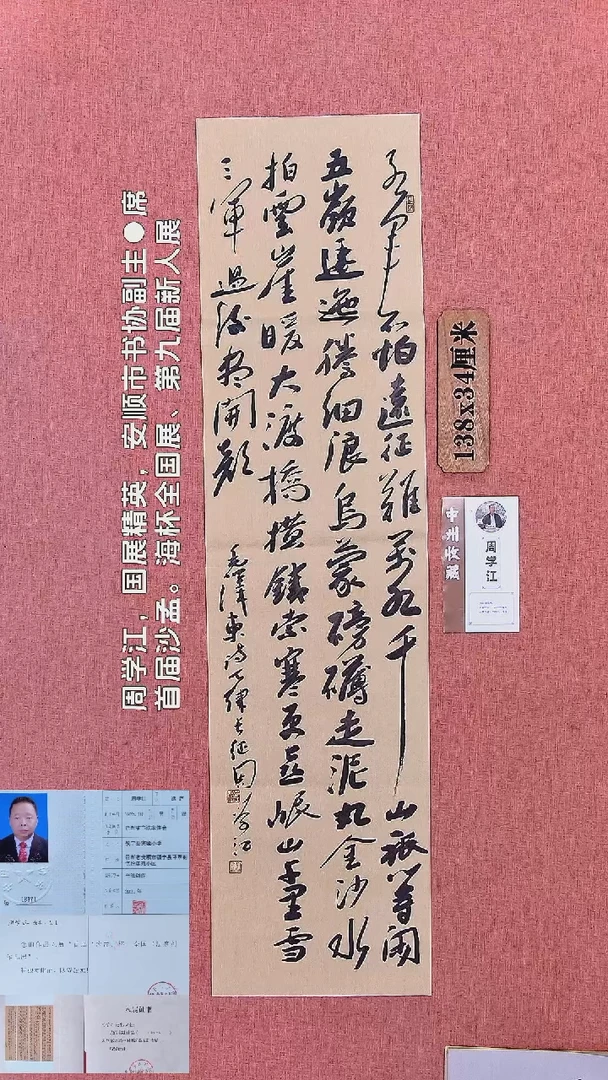 红军不怕遠征難萬水千山祇等闲
五嶺逶迤騰细浪烏蒙磅礴走泥丸金沙水
拍雲崖暖大渡橋横鐵索寒更喜岷山千里雪
三軍過後尽開颜
毛澤東诗七律长征周学江
周学江，国展精英，安顺市书协副主●席
首届沙孟。海杯全国展、第九届新人展
138x34厘米
中州收藏
周学江